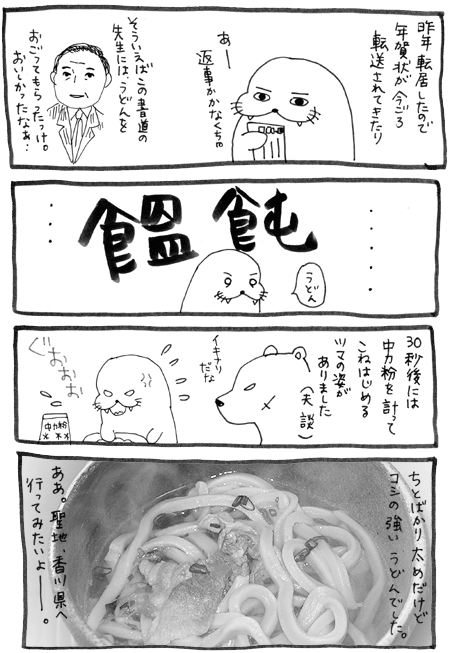 昨年転居したので
年賀状が今ごろ
転送されてきたり
あー
返事かかなくちゃ
そういえばこの書道の
先生にはうどんを
おごってもらったっけ。
おいしかったなぁ…
・・・・・
饂飩
うどん
・・・
30秒後には
中力粉を計って
こねはじめる
ツマの姿が
ありました
(夫談)
イキナリ
だな
ぐおおおお
中力粉
ちとばかり太めだけど
コシの強いうどんでした。
ああ。聖地、香川県へ
行ってみたいよーーー。